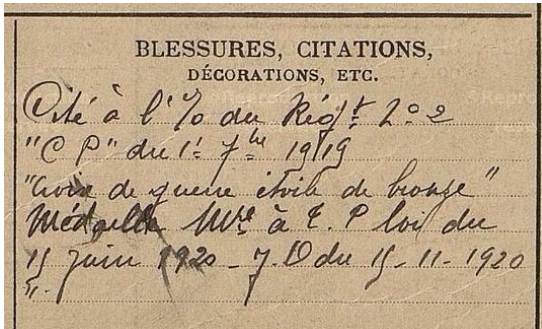 BLESSURES, CITATIONS,
DÉCORATIONS, ETC.
Cité à l'% du Régt. No 2
"C P" du 1er 7bre 1919
"Croix de guerre étoile de bronze"
Médaille Mre à T. P loi du
15 juin 1920 - J.O du 15-11-1920